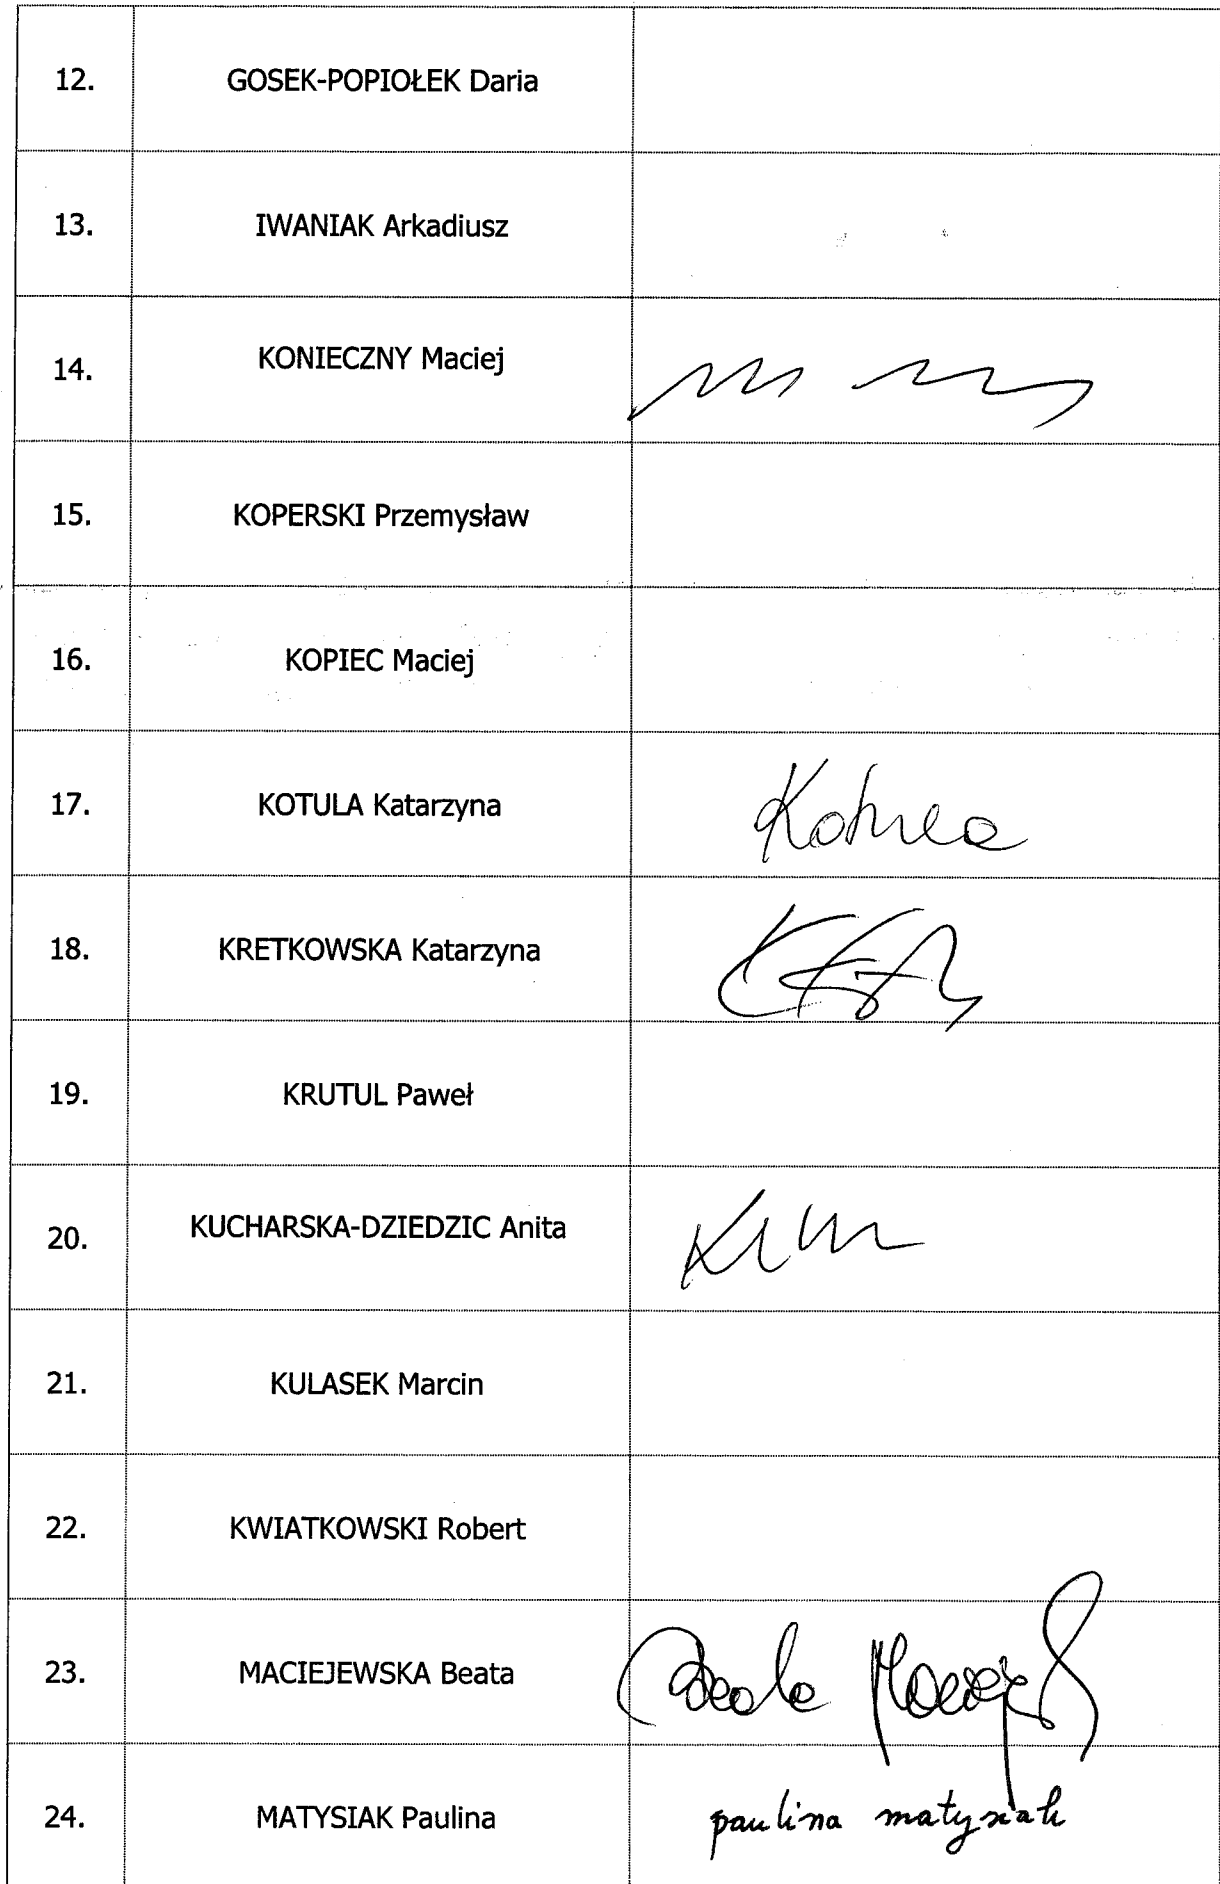 12. GOSEK-POPIOŁEK Daria
13. IWANIAK Arkadiusz
14. KONIECZNY Maciej
15. KOPERSKI Przemysław
16. KOPIEC Maciej
17. KOTULA Katarzyna Kotula
18. KRETKOWSKA Katarzyna
19. KRUTUL Paweł
20. KUCHARSKA-DZIEDZIC Anita
21. KULASEK Marcin
22. KWIATKOWSKI Robert
23. MACIEJEWSKA Beata Beata
24. MATYSIAK Paulina paulina matysiak